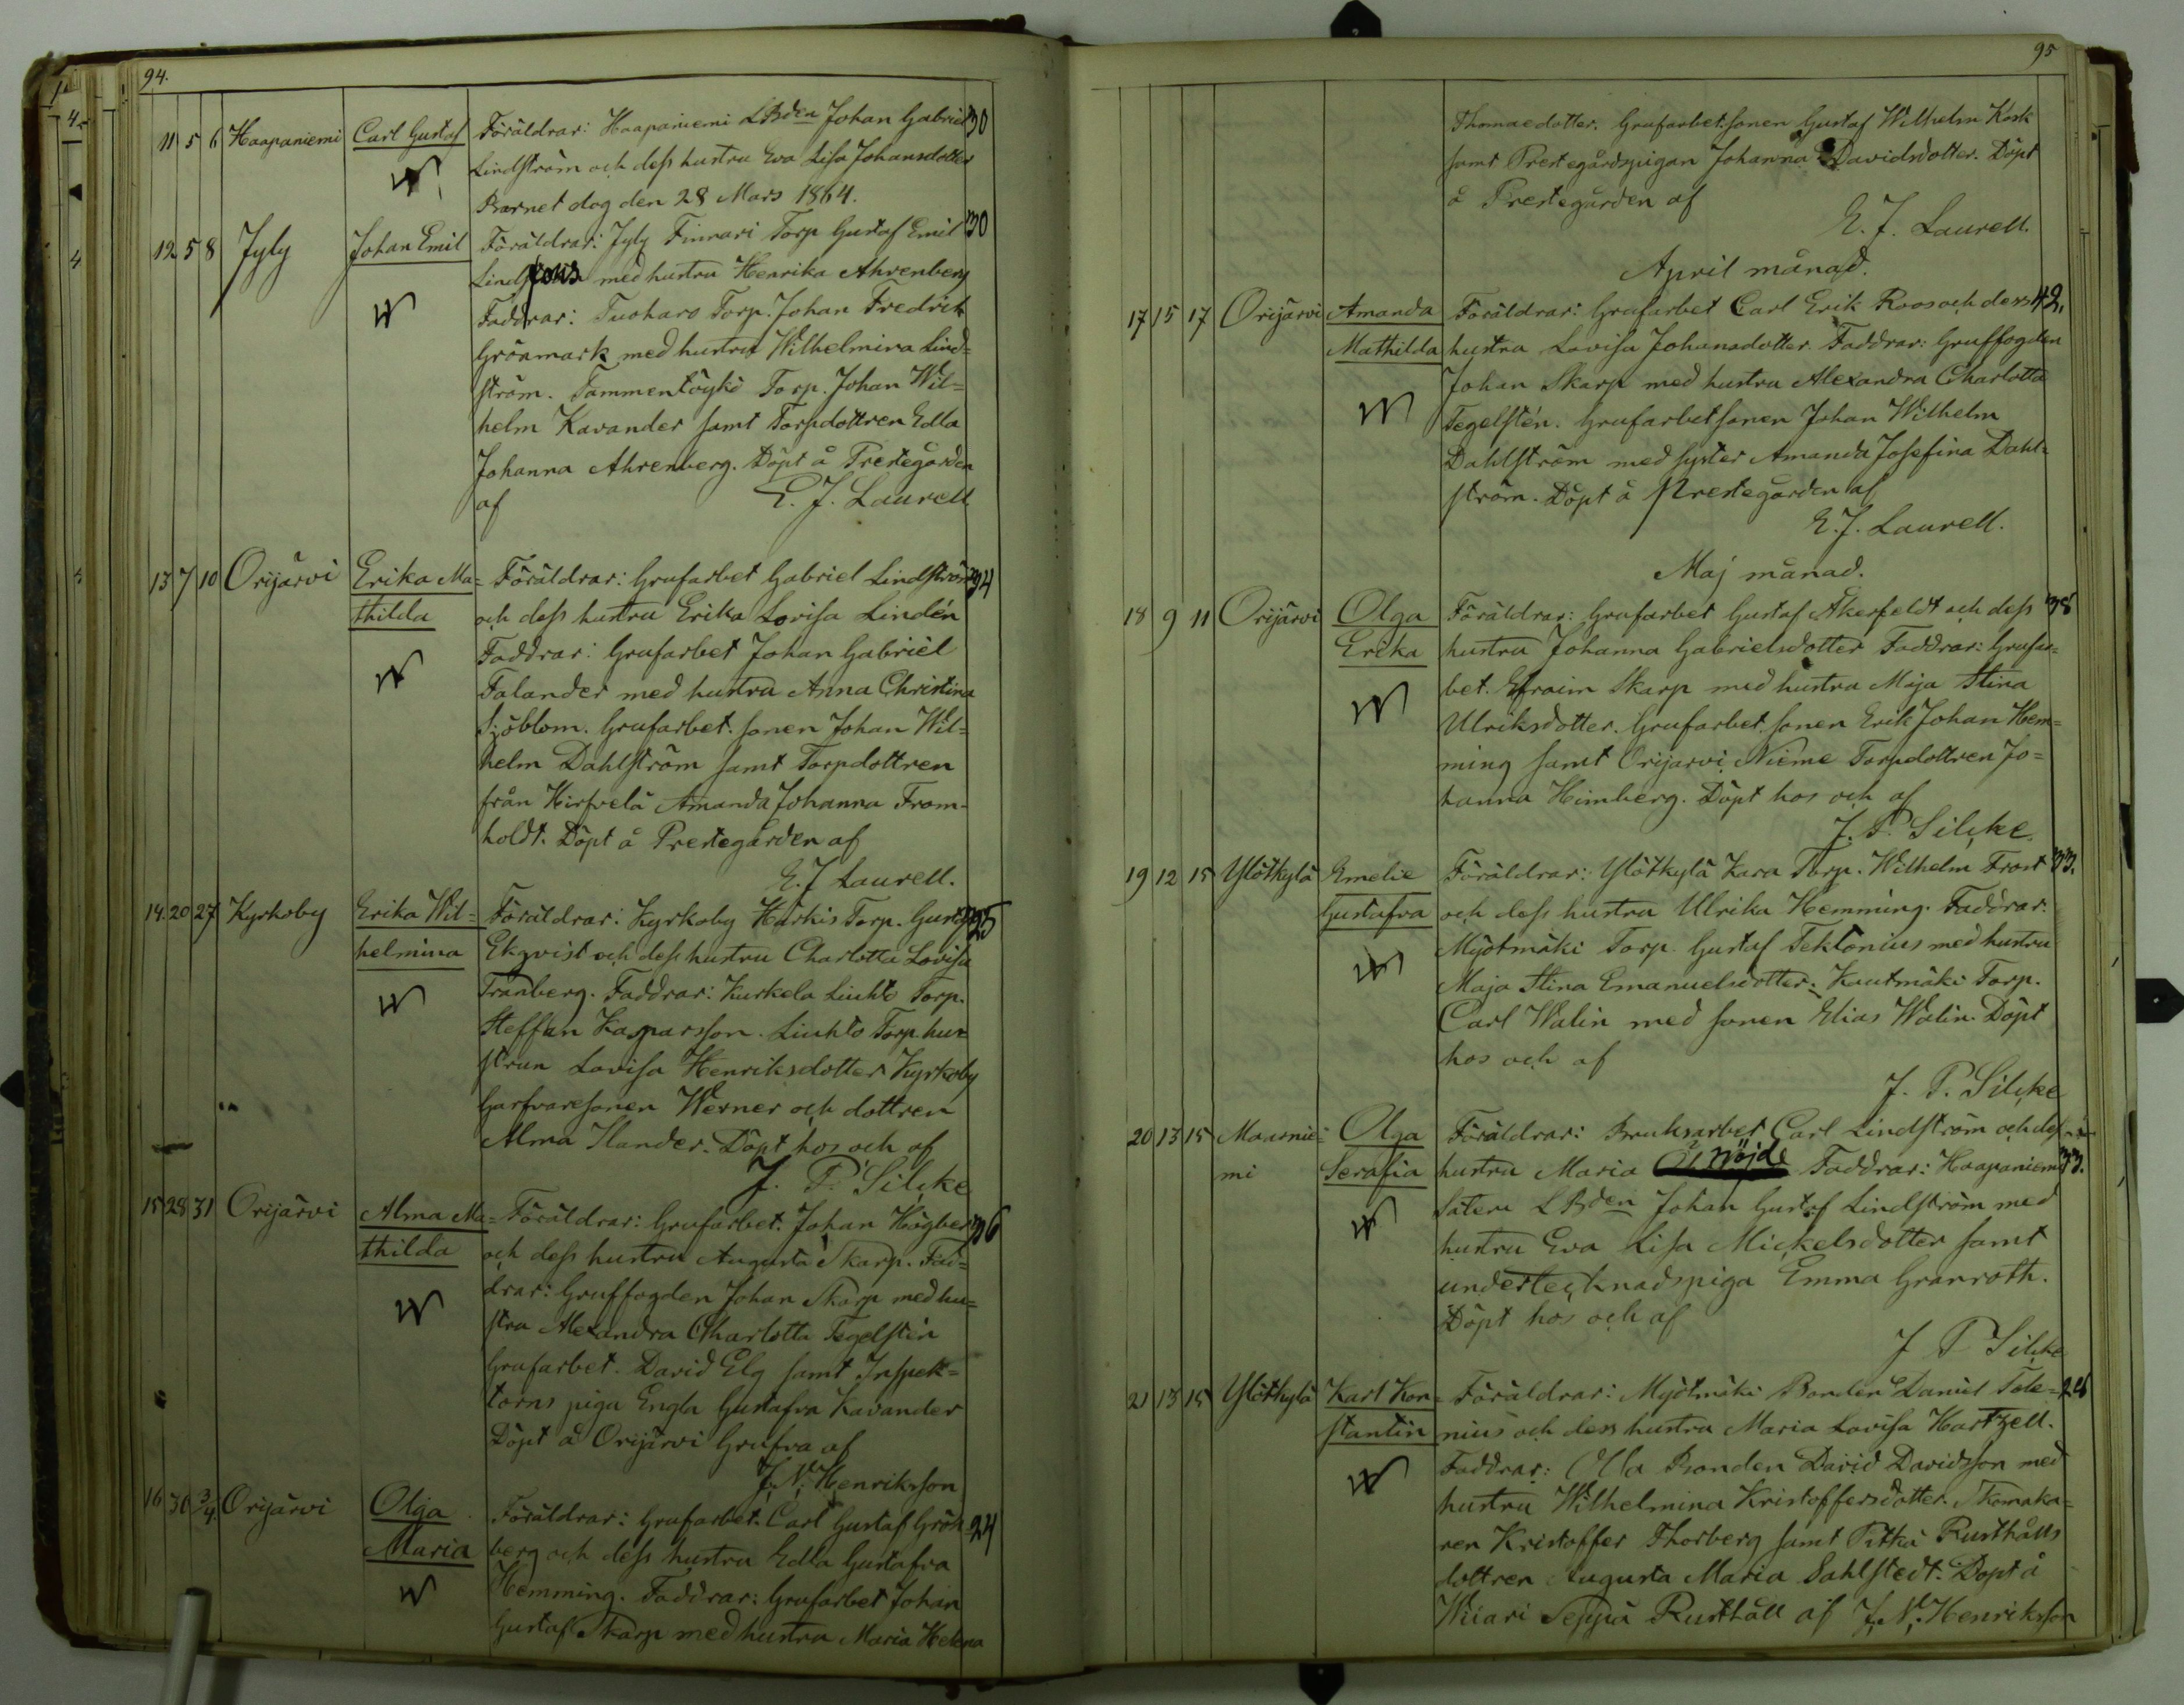 94.
11 5 6 Haapaniemi Carl Gustaf Föräldrar: Haapaniemi LBden Johan Gabriel 30
Lindström och dess hustru Eva Lisa Johansdotter
Barnet dog den 28 Mars 1864.
12 5 8 Jyly Johan Emil Föräldrar: Jyly Finnari Torp Gustaf Emil 30
med hustru Henrika Ahrenberg
Faddrar: Tuoharo Torp. Johan Fredrik
Grönmark med hustru Wilhelmina Lind=
ström. Tammenlöykö Torp. Johan Wil=
helm Kavander samt Torpdottren Edla
Johanna Ahrenberg. Döpt å Prestegården
af E. J. Laurell
13 7 10 Orijärvi Erika Ma= Föräldrar: Grufarbet Gabriel Lindström 34
thilda och dess hustru Erika Lovisa Lindén
Faddrar: Grufarbet Johan Gabriel
Falander med hustru Anna Christina
Sjöblom. Grufarbet. sonen Johan Wil=
helm Dahlström samt Torpdottren
från Hirfvelä Amanda Johanna From-
holdt. Döpt å Prestegården af
E. J. Laurell.
14. 20 27 Kyrkoby Erika Wil= Föräldrar: Kyrkoby Härkis Torp. Gustaf 25
helmina Ekqvist och dess hustru Charlotta Lovisa
Tranberg. Faddrar: Kurkela Liuhto Torp.
Steffan Kasparsson. Liuhto Torp. hu=
strun Lovisa Henriksdotter Kyrkoby
Garfvaresonen Werner och dottren
Alma Ilander. Döpt hos och af
J. P. Silcke
15 28 31 Orijärvi Alma Ma= Föräldrar: Grufarbet. Johan Högberg 36
thilda och dess hustru Augusta Skarp. Fad=
drar: Gruffogden Johan Skarp med hu=
stru Alexandra Charlotta Tegelstén
Grufarbet. David Elg samt Inspek=
torns piga Engla Gustafva Kavander
Döpt å Orijärvi Grufva af
J. N. Henriksson
16 30 3/4 Orijärvi Olga Föräldrar: Grufarbet. Carl Gustaf Grön= 24
Maria berg och dess hustru Edla Gustafva
Hemming. Faddrar: Grufarbet Johan
Gustaf Skarp med hustru Maria Helena
95
Thomaedotter. Grufarbet. sonen Gustaf Wilhelm Kosk
samt Prestegårdspigan Johanna Davidsdotter. Döpt
å Prestegården af
E. J. Laurell.
April månad.
17 15 17 Orijärvi Amanda Föräldrar: Grufarbet Carl Erik Roos och dess 42.
Mathilda hustru Lovisa Johansdotter. Faddrar: Gruffogden
Johan Skarp med hustru Alexandra Charlotta
Tegelstén. Grufarbetsonen Johan Wilhelm
Dahlström med syster Amanda Josefina Dahl=
ström. Döpt å Prestegården af
E. J. Laurell.
Maj månad.
18 9 11 Orijärvi Olga Föräldrar: Grufarbet Gustaf Åkerfeldt och dess 38
Erika hustru Johanna Gabrielsdotter Faddrar: Grufar=
bet. Efraim Skarp med hustru Maja Stina
Ulriksdotter. Grufarbet. sonen Erik Johan Hem=
ming samt Orijärvi Nieme Torpdottren Jo=
hanna Himberg. Döpt hos och af
J. P. Silcke
19 12 15 Ylötkylä Emelie Föräldrar: Ylötkylä Kara Torp. Wilhelm Frost 33.
Gustafva och dess hustru Ulrika Hemming. Faddrar:
Myötmäki Torp. Gustaf Tektonius med hustru
Maja Stina Emanuelsdotter. Kautmäki Torp.
Carl Walin med sonen Elias Walin. Döpt
hos och af
J. P. Silcke
20 13 15 Maasnie= Olga Föräldrar: Bruksarbet Carl Lindström och dess
mi Serafia hustru Maria Faddrar: Haapaniemi 33.
Säteri LBden Johan Gustaf Lindström med
hustru Eva Lisa Mickelsdotter samt
undertecknads piga Emma Granroth.
Döpt hos och af
J P Silcke
21 13 15 Ylötkylä Karl Kon= Föräldrar: Myötmäki Bonden Daniel Tole=
stantin nius och dess hustru Maria Lovisa Hartzell.
Faddrar: Olla Bonden David Davidsson med
hustru Wilhelmina Kristoffersdotter. Skomaka=
ren Kristoffer Thorberg samt Pitkä Rusthålls
dottren Augusta Maria Sahlstedt. Döpt å
Wiiari Seppä Rusthåll af J. N. Henriksson